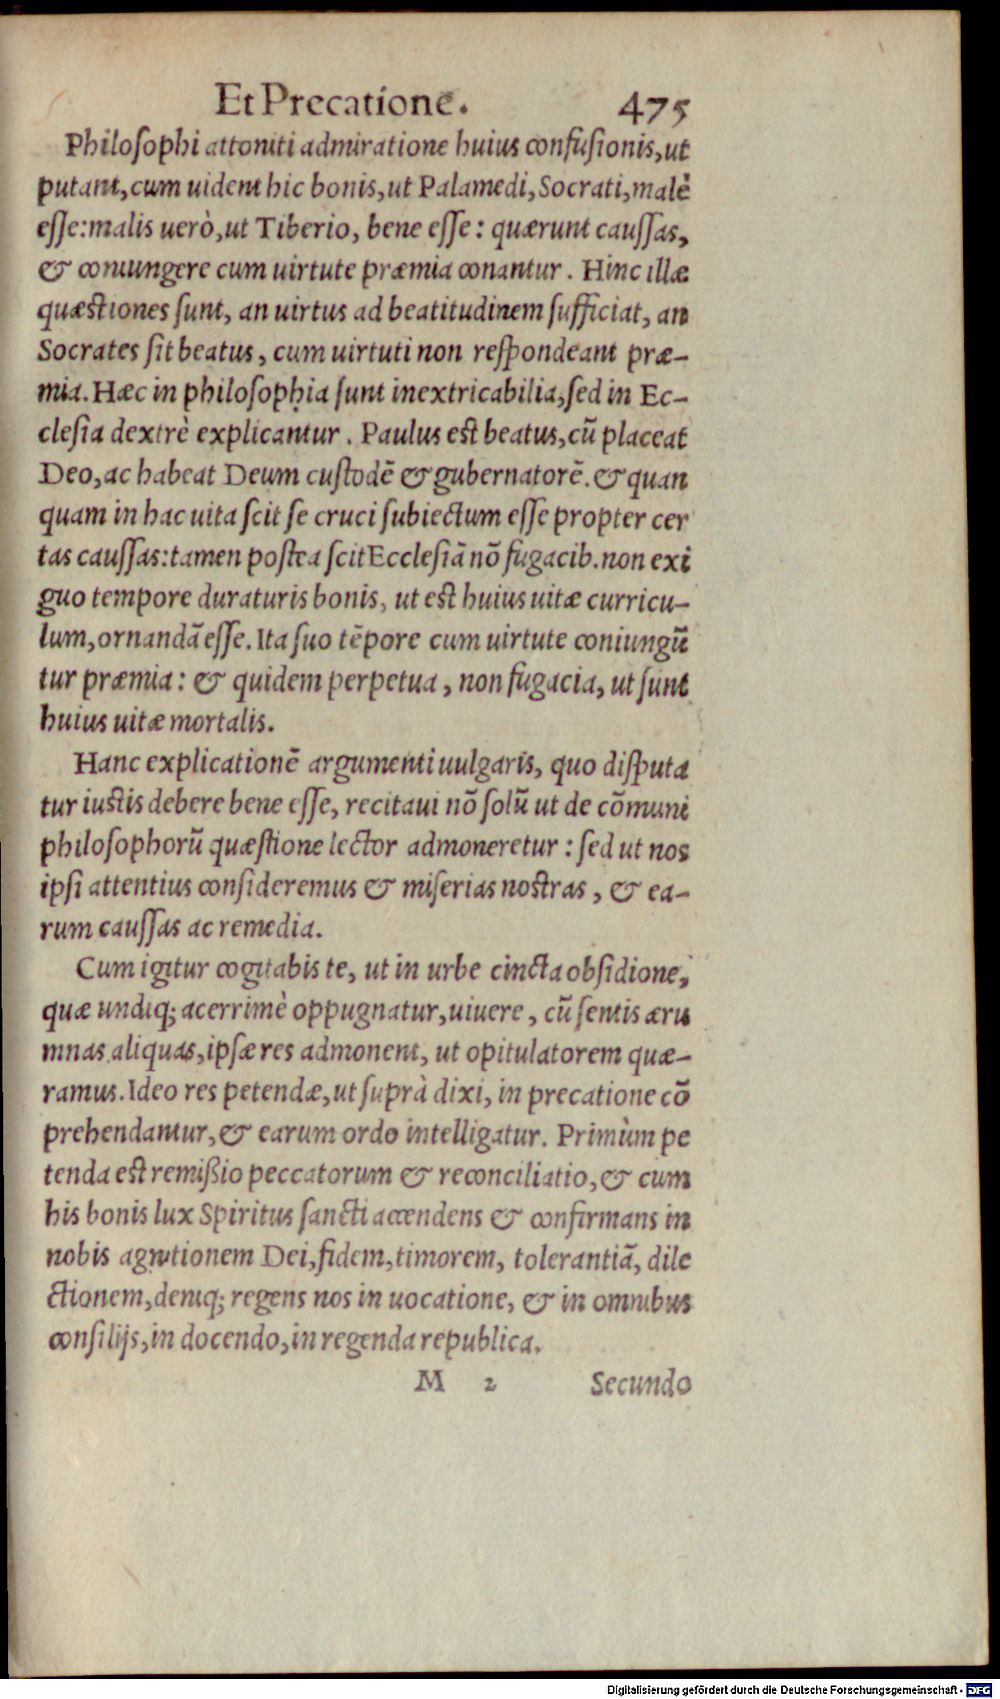 Et Precatione. 475
Philosophi attoniti admiratione huius confusionis, ut
putant, cum uident hic bonis, ut Palamedi, Socrati, malè
esse: malis uerò, ut Tiberio, bene esse: quærunt caussas,
& coniungere cum uirtute præmia conantur. Hinc illæ
quæstiones sunt, an uirtus ad beatitudinem sufficiat, an
Socrates sit beatus, cum uirtuti non respondeant præ-
mia. Hæc in philosophia sunt inextricabilia, sed in Ec-
clesia dextrè explicantur. Paulus est beatus, cū placeat
Deo, ac habeat Deum custodē & gubernatorē. & quan
quam in hac uita scit se cruci subiectum esse propter cer
tas caussas: tamen postea scit Ecclesiā nō fugacib. non exi
guo tempore duraturis bonis, ut est huius uitæ curricu-
lum, ornandā esse. Ita suo tēpore cum uirtute coniungū
tur præmia: & quidem perpetua, non fugacia, ut sunt
huius uitæ mortalis.
Hanc explicationē argumenti uulgaris, quo disputa
tur iustis debere bene esse, recitaui nō solū ut de cōmuni
philosophorū quæstione lector admoneretur: sed ut nos
ipsi attentius consideremus & miserias nostras, & ea-
rum caussas ac remedia.
Cum igitur cogitabis te, ut in urbe cincta obsidione,
quæ undiq; acerrimè oppugnatur, uiuere, cū sentis æru
mnas aliquas, ipsæ res admonent, ut opitulatorem quæ-
ramus. Ideo res petendæ, ut suprà dixi, in precatione cō
prehendantur, & earum ordo intelligatur. Primùm pe
tenda est remißio peccatorum & reconciliatio, & cum
his bonis lux Spiritus sancti accendens & confirmans in
nobis agnitionem Dei, fidem, timorem, tolerantiā, dile
ctionem, deniq; regens nos in uocatione, & in omnibus
consilijs, in docendo, in regenda republica.
M 2 Secundo
Digitalisierung gefördert durch die Deutsche Forschungsgemeinschaft - DFG